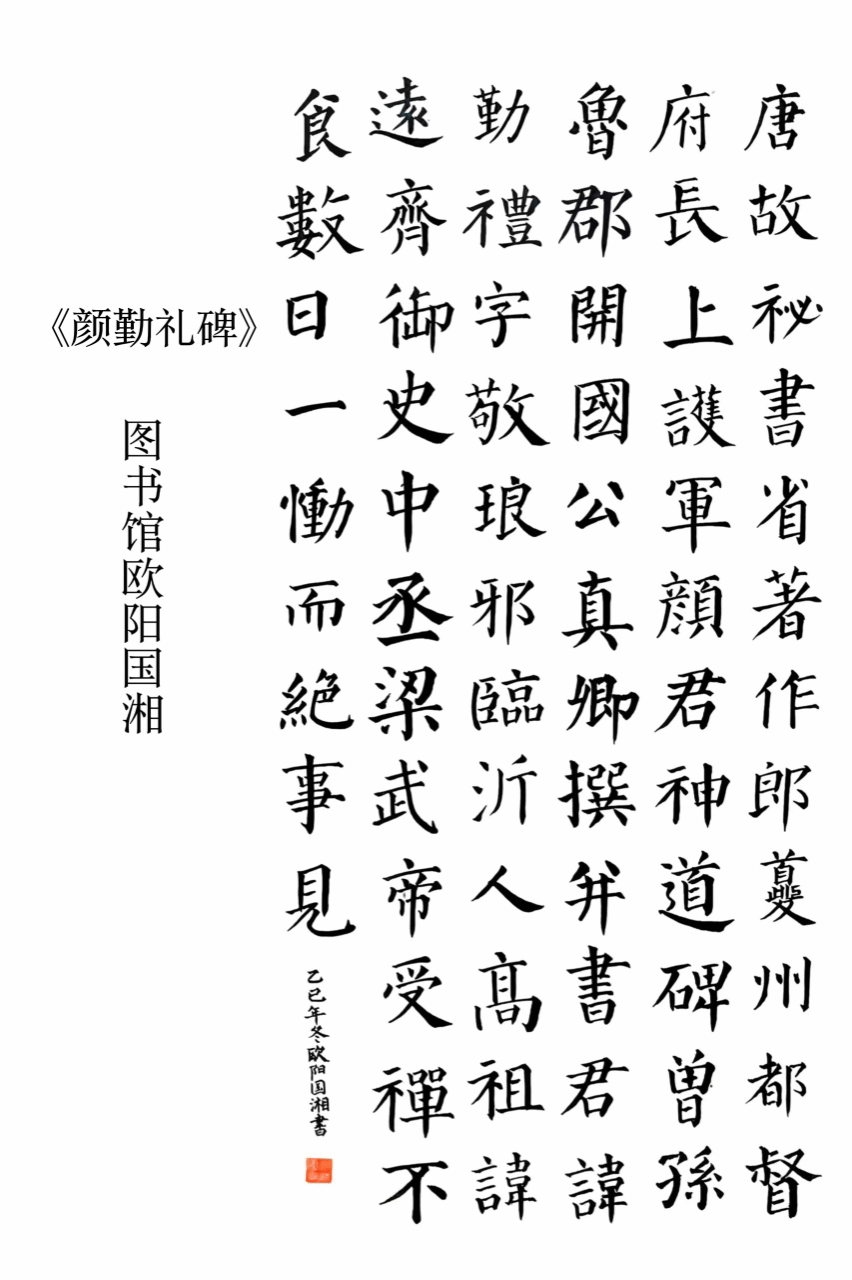 唐故祕書省著作郎夔州都督
府長上護軍顏君神道碑曾孫
魯郡開國公真卿撰并書君諱
勤禮字敬琅邪臨沂人高祖諱
遠齊御史中丞梁武帝受禪不
食數日一慟而絕事見
乙巳年冬欧阳国湘書
《颜勤礼碑》
图书馆欧阳国湘